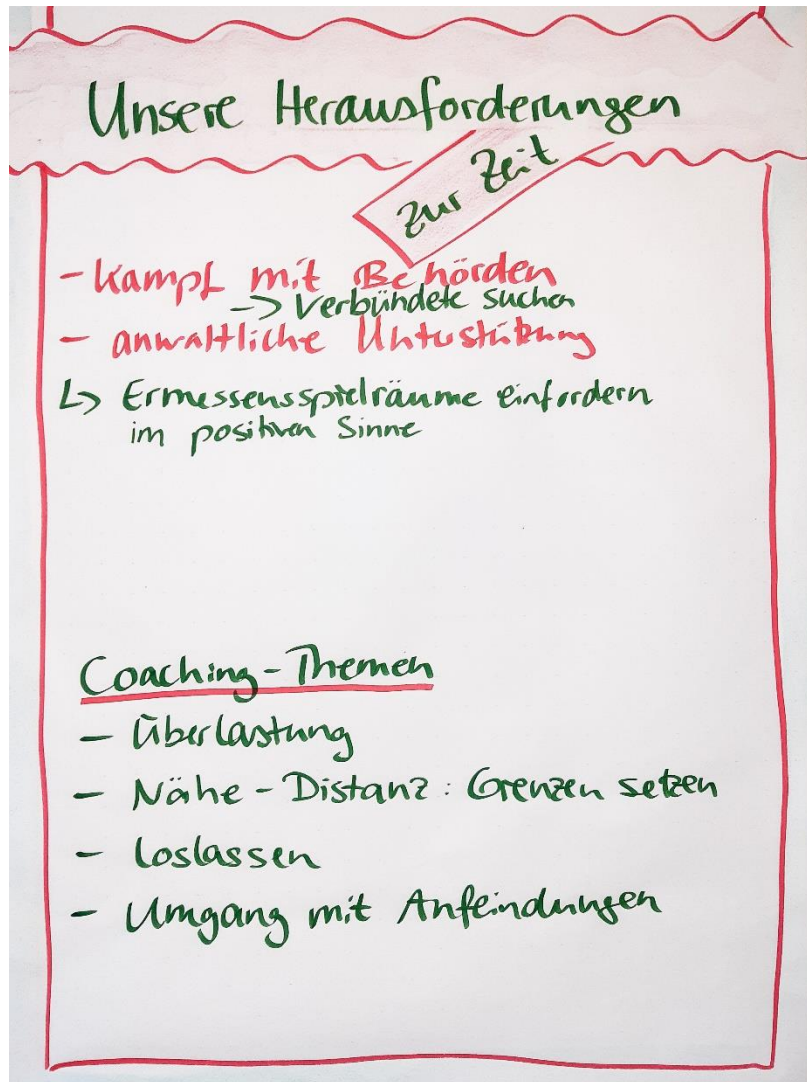 Unsere Herausforderungen
zur Zeit
- Kampf mit Behörden
-> Verbündete suchen
- anwaltliche Unterstützung
↳ Ermessensspielräume einfordern
im positiven Sinne
Coaching-Themen
- Überlastung
- Nähe - Distanz : Grenzen setzen
- Loslassen
- Umgang mit Anfeindungen